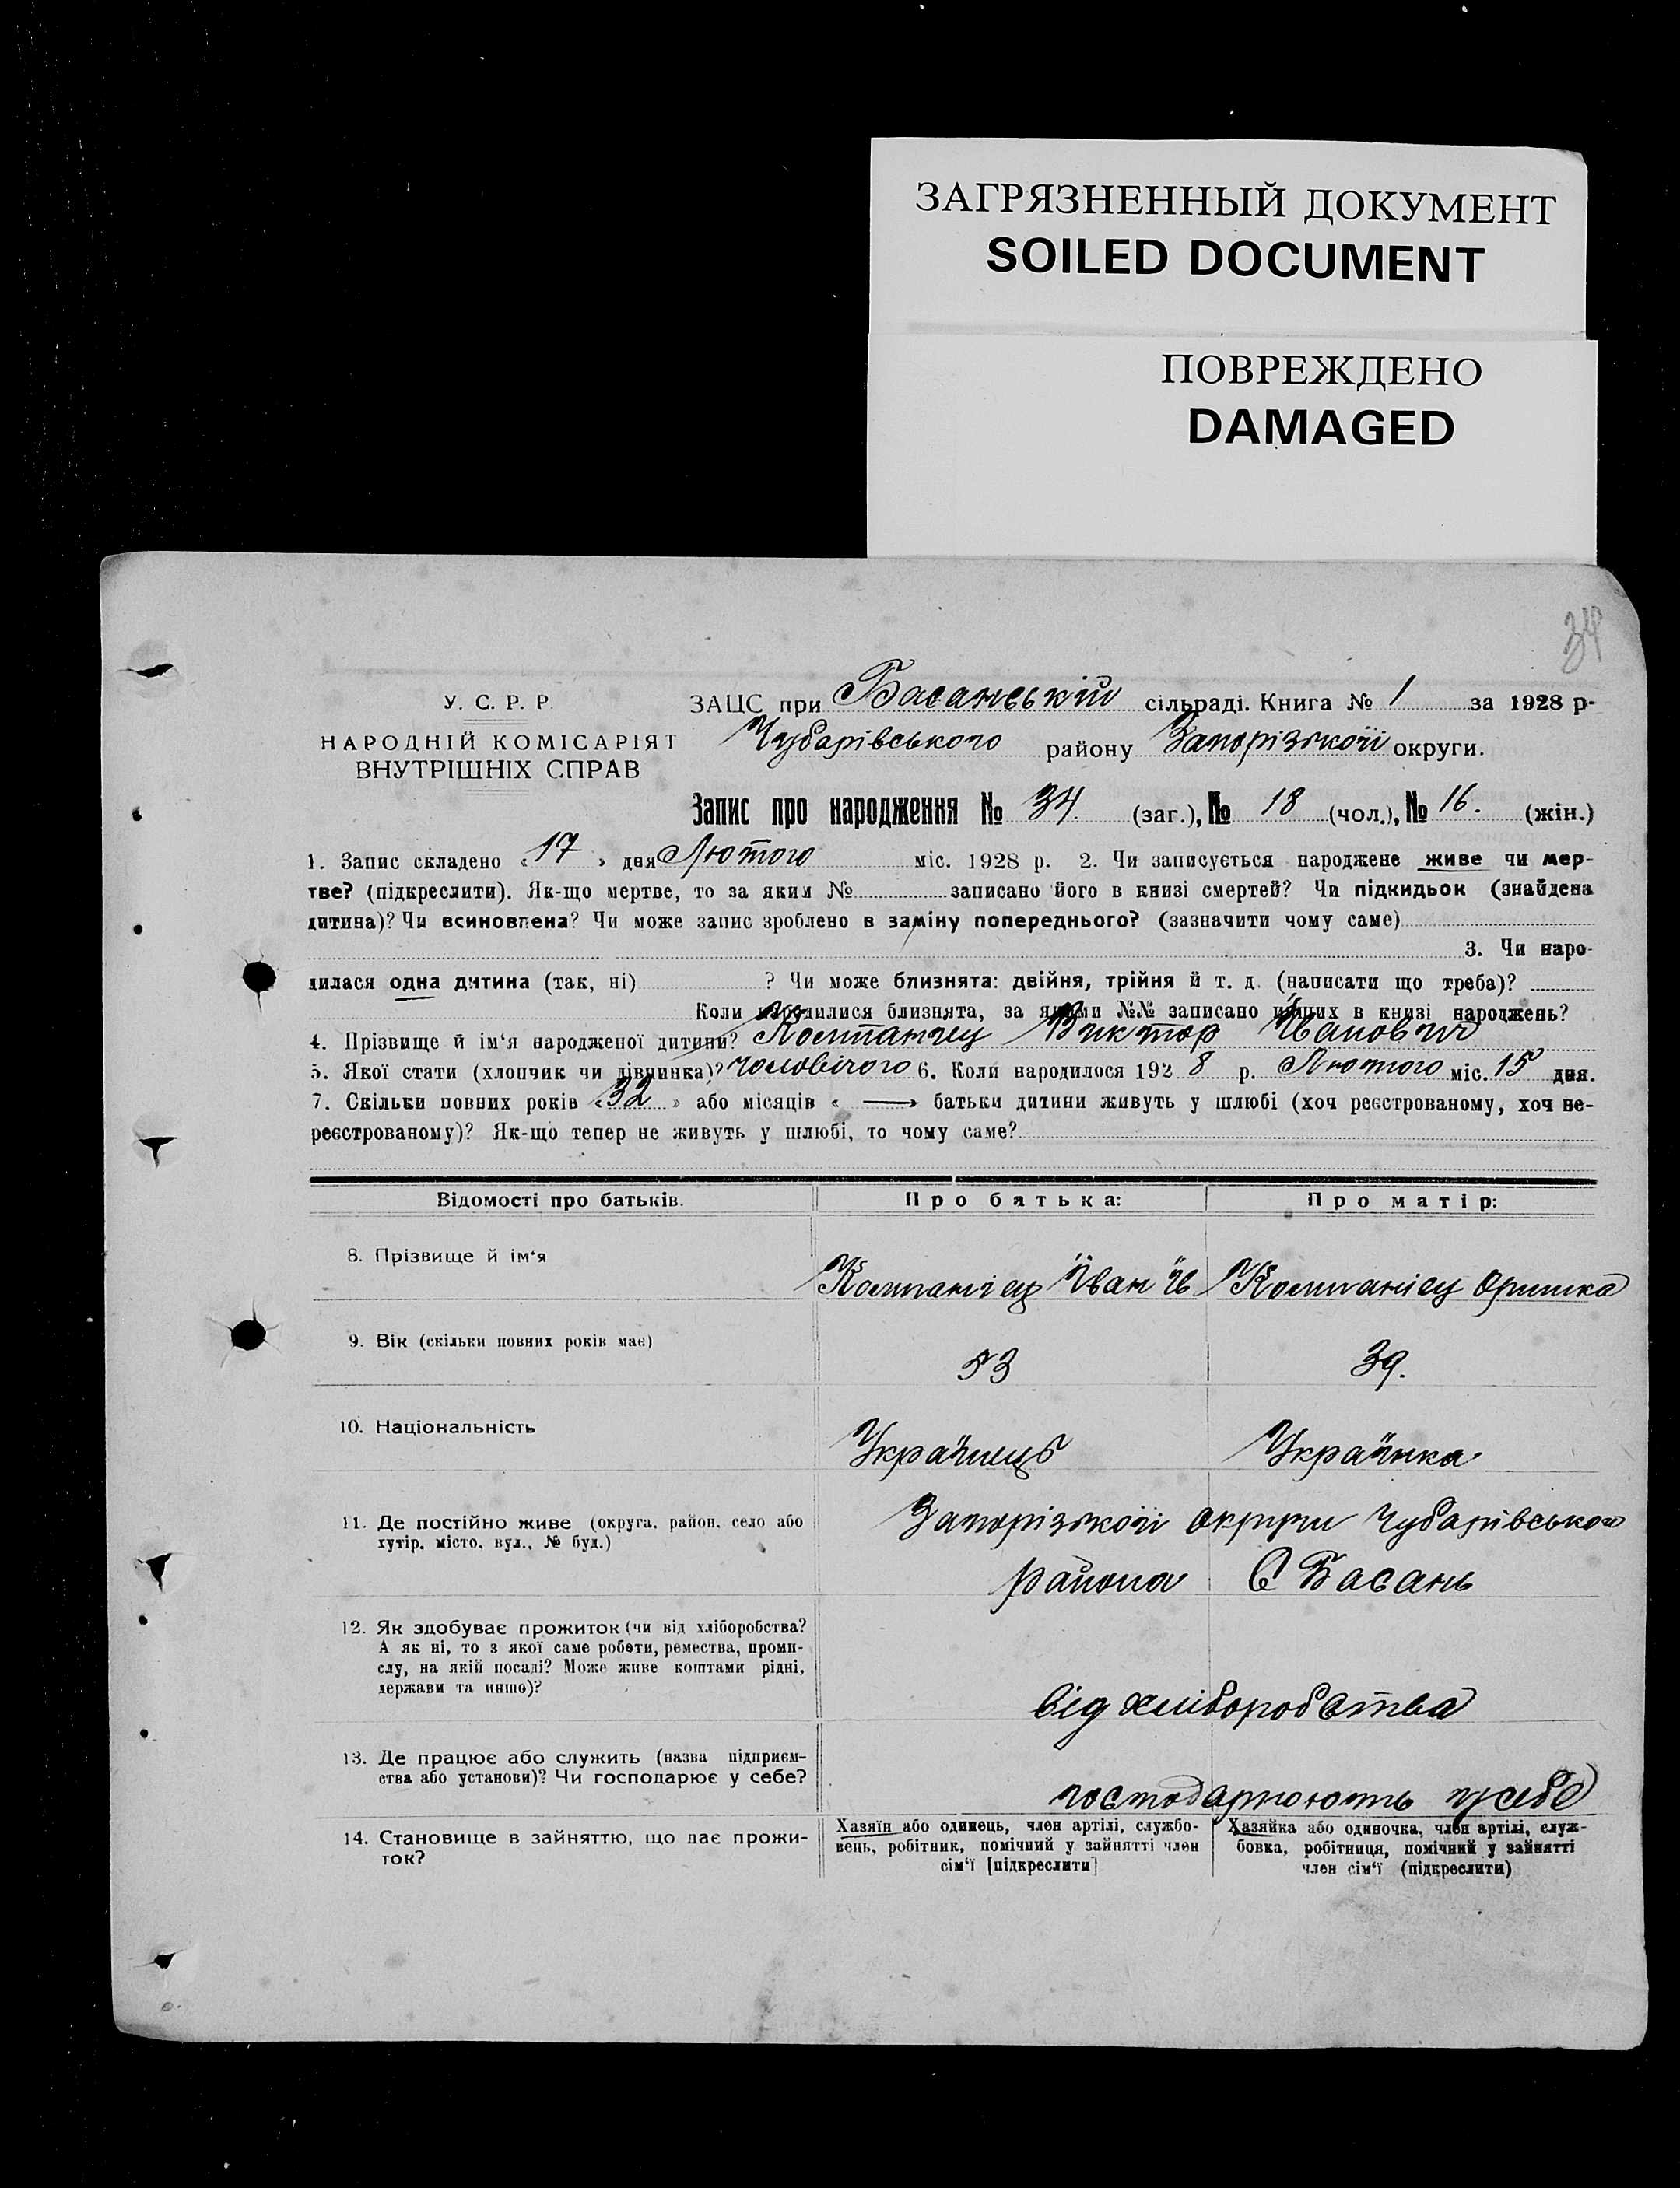 ЗАГРЯЗНЕННЫЙ ДОКУМЕНТ
SOILED DOCUMENT
ПОВРЕЖДЕНО
DAMAGED
34
У. С. Р. Р.
НАРОДНІЙ КОМІСАРІЯТ
ВНУТРІШНІХ СПРАВ
ЗАЦС при Басанській сільраді. Книга № 1 за 1928 р-
Чубарівського району Запорізської округи.
Запис про народження № 34. (заг.), № 18 (чол.), № 16. (жін.)
1. Запис складено « 17 » дня Лютого міс. 1928 р. 2. Чи записується народжене живе чи мер-
тве? (підкреслити). Як-що мертве, то за яким № записано його в книзі смертей? Чи підкидьок (знайдена
дитина)? Чи всиновлена? Чи може запис зроблено в заміну попереднього? (зазначити чому саме)
3. Чи наро-
дилася одна дитина (так, ні) ? Чи може близнята: двійня, трійня й т. д. (написати що треба)?
Коли народилися близнята, за якими №№ записано инших в книзі народжень?
4. Прізвище й ім‘я народженої дитини? Компаніец Виктор Иванович
5. Якої стати (хлопчик чи дівчинка)? чоловічого 6. Коли народилося 192 8 р. Лютого міс. 15 дня.
7. Скільки повних років « 32 » або місяців « — » батьки дитини живуть у шлюбі (хоч реєстрованому, хоч не-
реєстрованому)? Як-що тепер не живуть у шлюбі, то чому саме?
Відомості про батьків. Про батька: Про матір:
8. Прізвище й ім‘я
Компаніец Іван Ів Компаніец Оришка
9. Вік (скільки повних років має)
53 39.
10. Національність
Українець Українка
11. Де постійно живе (округа, район, село або
хутір, місто, вул., № буд.)
Запорізської округи Чубарівського
района С Басань
12. Як здобуває прожиток (чи від хліборобства?
А як ні, то з якої саме роботи, ремества, проми-
слу, на якій посаді? Може живе коштами рідні,
держави та инше)?
від хліборобства
13. Де працює або служить (назва підприєм-
ства або установи)? Чи господарює у себе?
господарюють усебе
14. Становище в зайняттю, що дає прожи-
ток?
Хазяїн або одинець, член артілі, службо-
вець, робітник, помічний у зайнятті член
сім‘ї [підкреслити]
Хазяйка або одиночка, член артілі, служ-
бовка, робітниця, помічний у зайнятті
член сім‘ї (підкреслити)